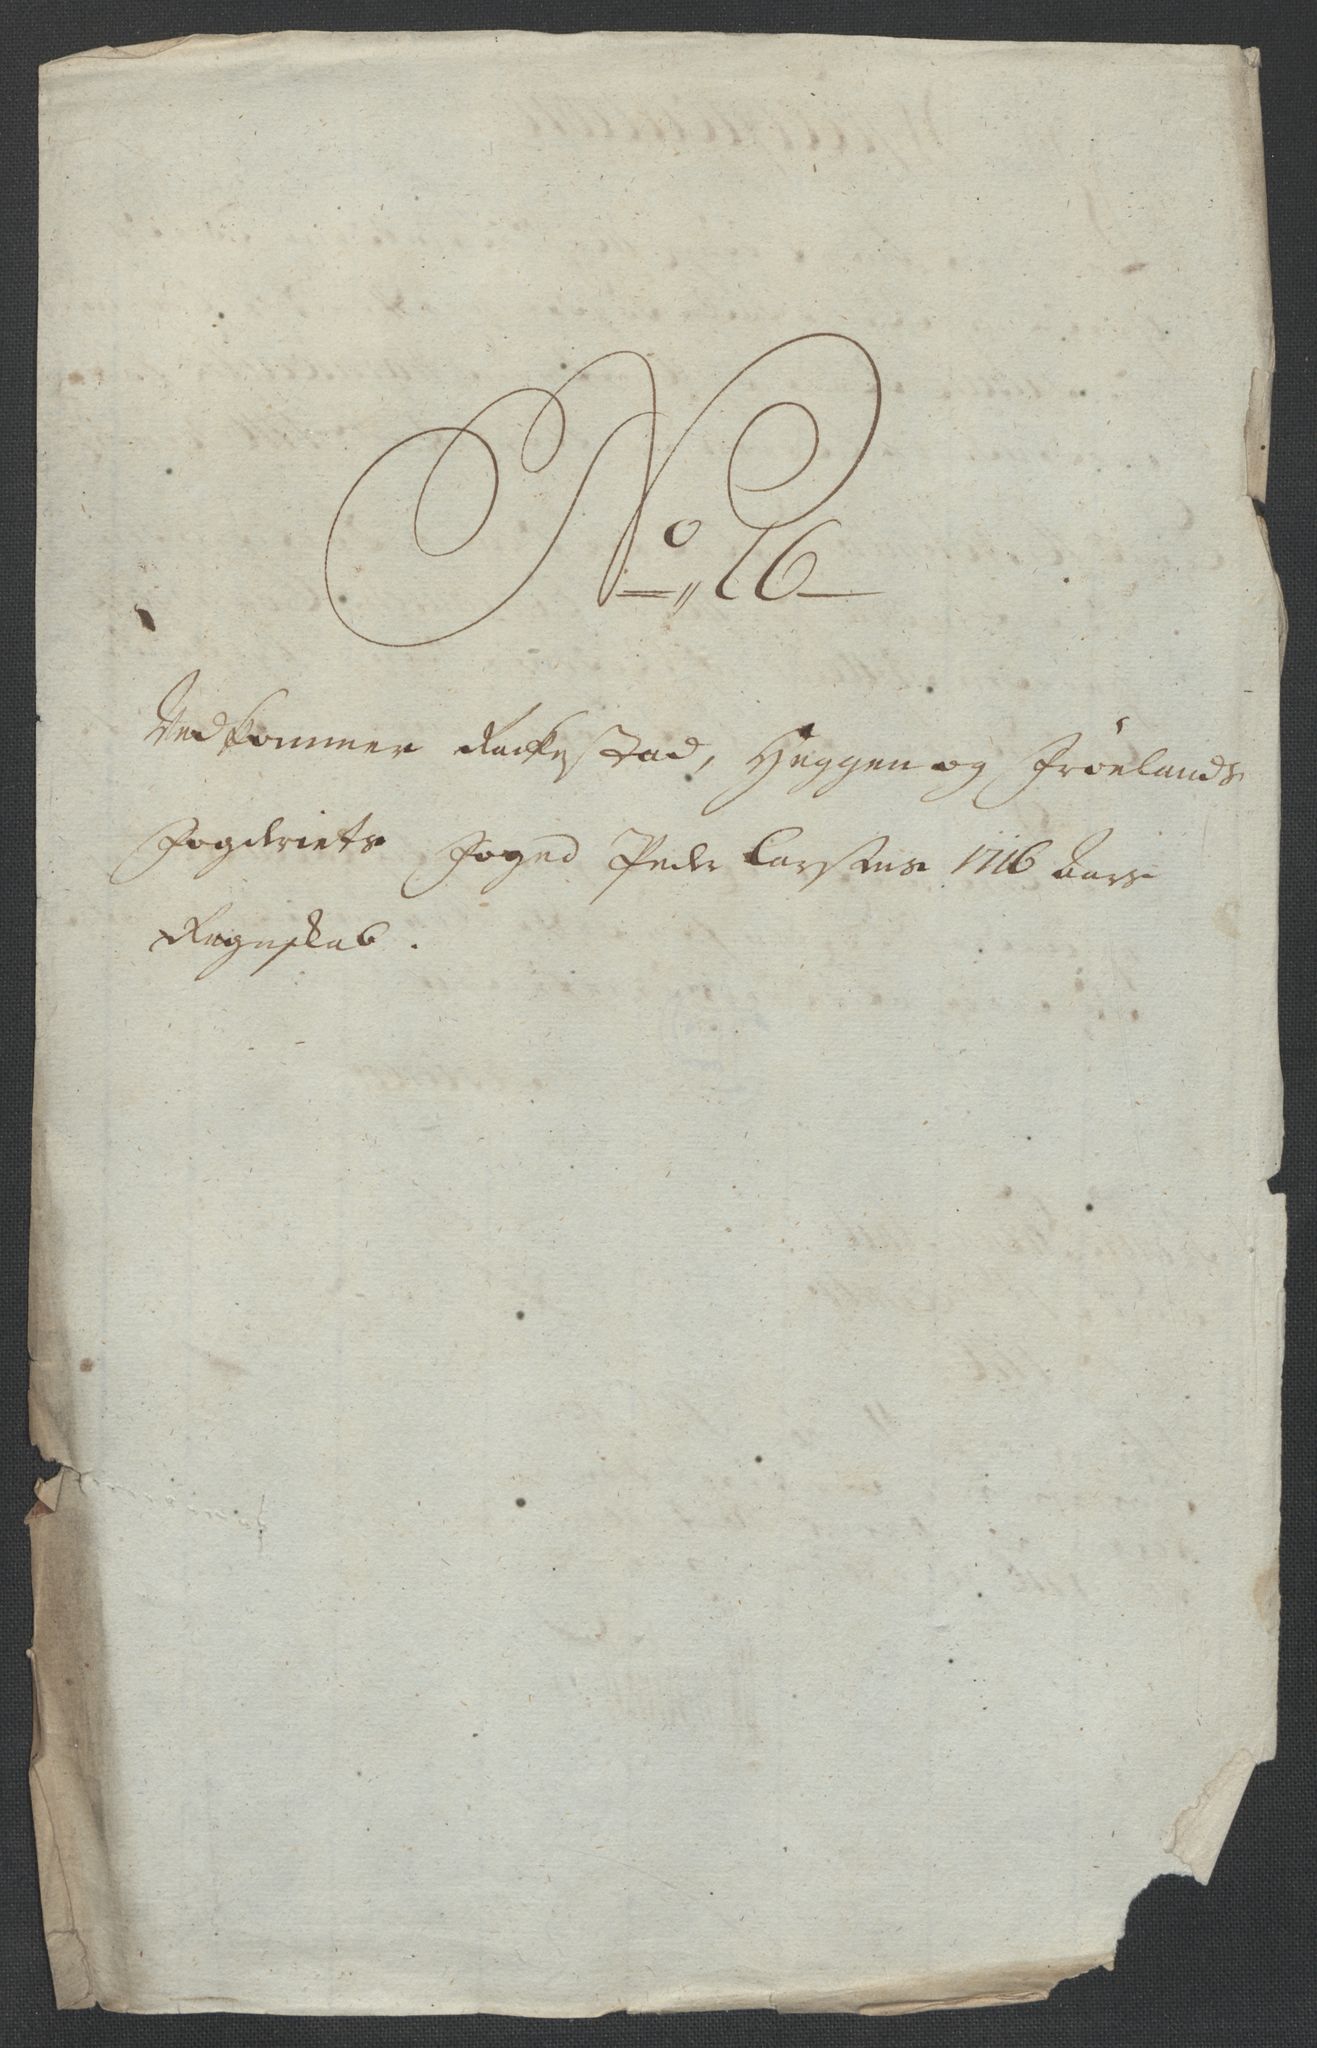 No 16
Vedkommer Rackestad, Heggen og Fröelands
Fogderiets Foged Peder Carstens 1716 Aars
Regnskab.